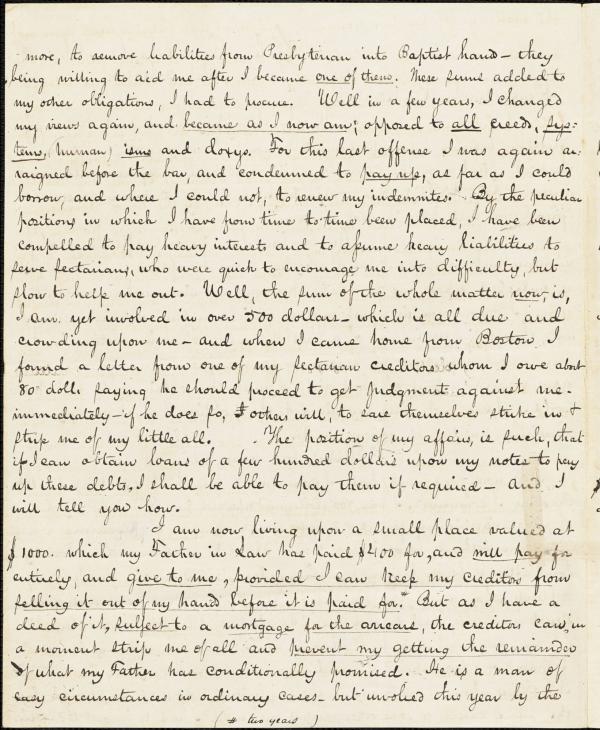 more, to remove liabilities from Presbyterian into Baptist hand – they
being willing to aid me after I became one of them. These sums added to
my other obligations, I had to procure. Well in a few years, I changed
my views again, and became as I now am; opposed to all creeds, sys=
tems, (human) isms and doxys. For this last offense I was again ar-
raigned before the bar, and condemned to pay up, as far as I could
borrow, and where I could not, to renew my indemnites. By the peculiar
positions in which I have from time to time been placed, I have been
compelled to pay heavy interests and to assume heavy liabilities to
serve sectarians, who were quick to encourage me into difficulty, but
slow to help me out. Well, the sum of the whole matter now, is,
I am yet involved in over 500 dollars – which is all due and
crowding upon me – and when I came home from Boston I
found a letter from one of my sectarian creditors whom I owe about
80 dolls saying he should proceed to get judgment against me
immediately – if he does so, others will, to save themselves strike in &
strip me of my little all. The position of my affairs, is such, that
if I can obtain loans of a few hundred dollars upon my notes to pay
up these debts, I shall be able to pay them if required – and I
will tell you how.
I am now living upon a small place valued at
$1000. which my Father in Law has paid $400 for, and will pay for
entirely, and give to me, provided I can keep my creditors from
selling it out of my hands before it is paid for.* But as I have a
deed of it, subject to a mortgage for the arrears, the creditors can, in
a moment strip me of all and prevent my getting the remainder
of what my Father has conditionally promised. He is a man of
easy circumstances in ordinary cases – but involved this year by the
(# two years)